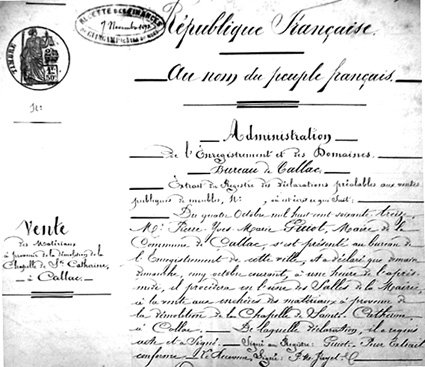 République Française.
Au nom du peuple français.
Administration
de l'Enregistrement et des Domaines.
Bureau de Callac.
Extrait du Registre des déclarations préalables aux ventes
publiques de meubles, N° , où est écrit ce qui suit :
Du quatre Octobre mil huit cent soixante treize,
M. Pierre Yves Marie Guiot, Maire de la
Commune de Callac, s'est présenté au bureau de
l'Enregistrement de cette ville, et a déclaré que demain
dimanche, cinq octobre courant, à une heure de l'après
midi, il procédera en l'une des Salles de la Mairie,
à la vente aux enchères des matériaux à provenir de
la démolition de la Chapelle de Sainte Catherine,
à Callac. De laquelle déclaration, il a requis
acte et a Signé. Signé au Registre : Guiot - Pour Extrait
conforme Le Receveur, Signé :
TIMBRE
N°
Vente
des Matériaux
à provenir de la démolition de la
Chapelle de Ste Catherine,
à Callac
RECETTE DES FINANCES
7 Novembre